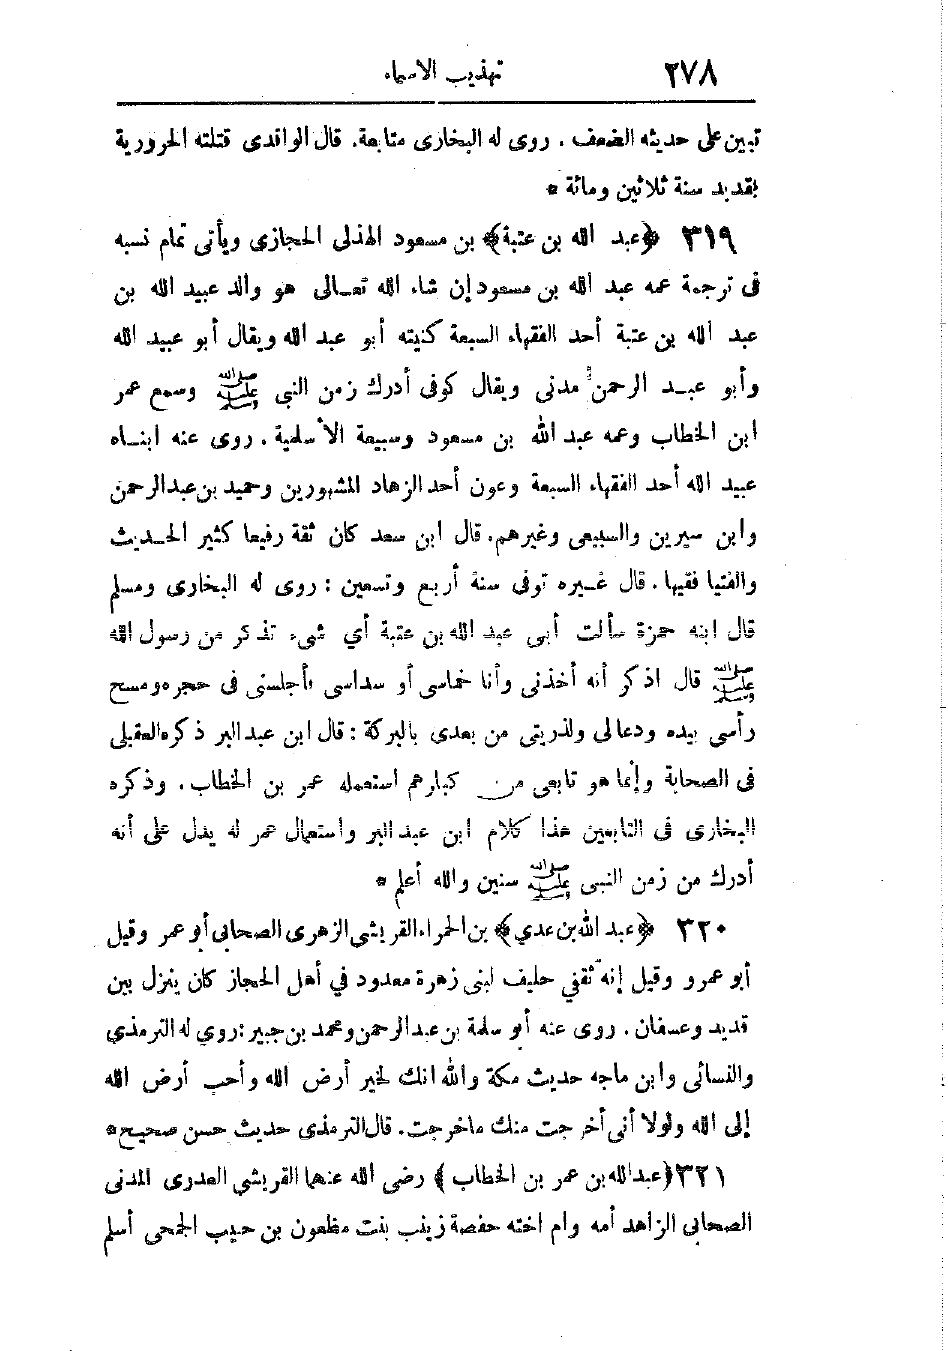 ٢٧٨ تهذيب الاسماء
تبين على حديثه الضعف . روى له البخارى متابعة. قال الواقدى قتلته الحرورية
بقديد سنة ثلاثين ومائة *
٣١٩ ﴿عبد الله بن عتبة﴾ بن مسعود الهذلى الحجازى ويأتى تمام نسبه
فى ترجمة عمه عبد الله بن مسعود إن شاء الله تعالى هو والد عبيد الله بن
عبد الله بن عتبة أحد الفقهاء السبعة كنيته أبو عبد الله ويقال أبو عبيد الله
وأبو عبد الرحمن مدنى ويقال كوفى أدرك زمن النبى ﷺ وسمع عمر
ابن الخطاب وعمه عبد الله بن مسعود وسبيعة الأسلمية . روى عنه ابناه
عبيد الله أحد الفقهاء السبعة وعون أحد الزهاد المشهورين وحميد بن عبد الرحمن
وابن سيرين والسبيعى وغيرهم. قال ابن سعد كان ثقة رفيعا كثير الحديث
والفتيا فقيها . قال غيره توفى سنة أربع وتسعين : روى له البخارى ومسلم
قال ابنه حمزة سألت أبى عبد الله بن عتبة أي شىء تذكر من رسول الله
ﷺ قال اذكر أنه أخذنى وأنا خماسى أو سداسى فأجلسنى فى حجره ومسح
رأسى بيده ودعا لى ولذريتى من بعدى بالبركة : قال ابن عبد البر ذكره العقيلى
فى الصحابة وإنما هو تابعى من كبارهم استعمله عمر بن الخطاب . وذكره
البخارى فى التابعين هذا كلام ابن عبد البر واستعمال عمر له يدل على أنه
أدرك من زمن النبى ﷺ سنين والله أعلم *
٣٢٠ ﴿عبد الله بن عدي﴾ بن الحمراء القريشى الزهرى الصحابى أبو عمر وقيل
أبو عمرو وقيل إنه ثقفي حليف لبنى زهرة معدود في أهل الحجاز كان ينزل بين
قديد وعسفان . روى عنه أبو سلمة بن عبد الرحمن ومحمد بن جبير : روي له الترمذي
والنسائى وابن ماجه حديث مكة والله انك لخير أرض الله وأحب أرض الله
إلى الله ولولا أنى أخرجت منك ماخرجت. قال الترمذى حديث حسن صحيح *
٣٢١ ﴿عبد الله بن عمر بن الخطاب ﴾ رضى الله عنهما القريشي العدوى المدنى
الصحابى الزاهد أمه وام اخته حفصة زينب بنت مظعون بن حبيب الجمحى أسلم